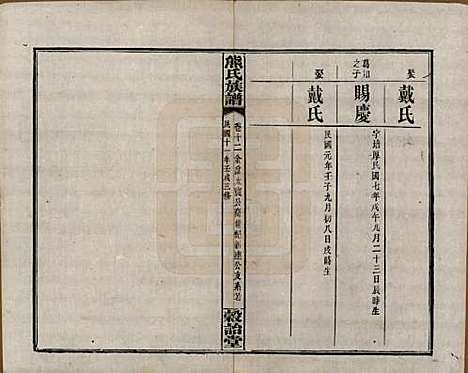 娶 戴氏
為知之子 賜慶
字培厚民國七年戊午九月二十三日辰時生
娶 戴氏
民國元年壬子九月初八日戌時生
熊氏族譜
卷十二
民國十一年壬戌三修
穀詒堂